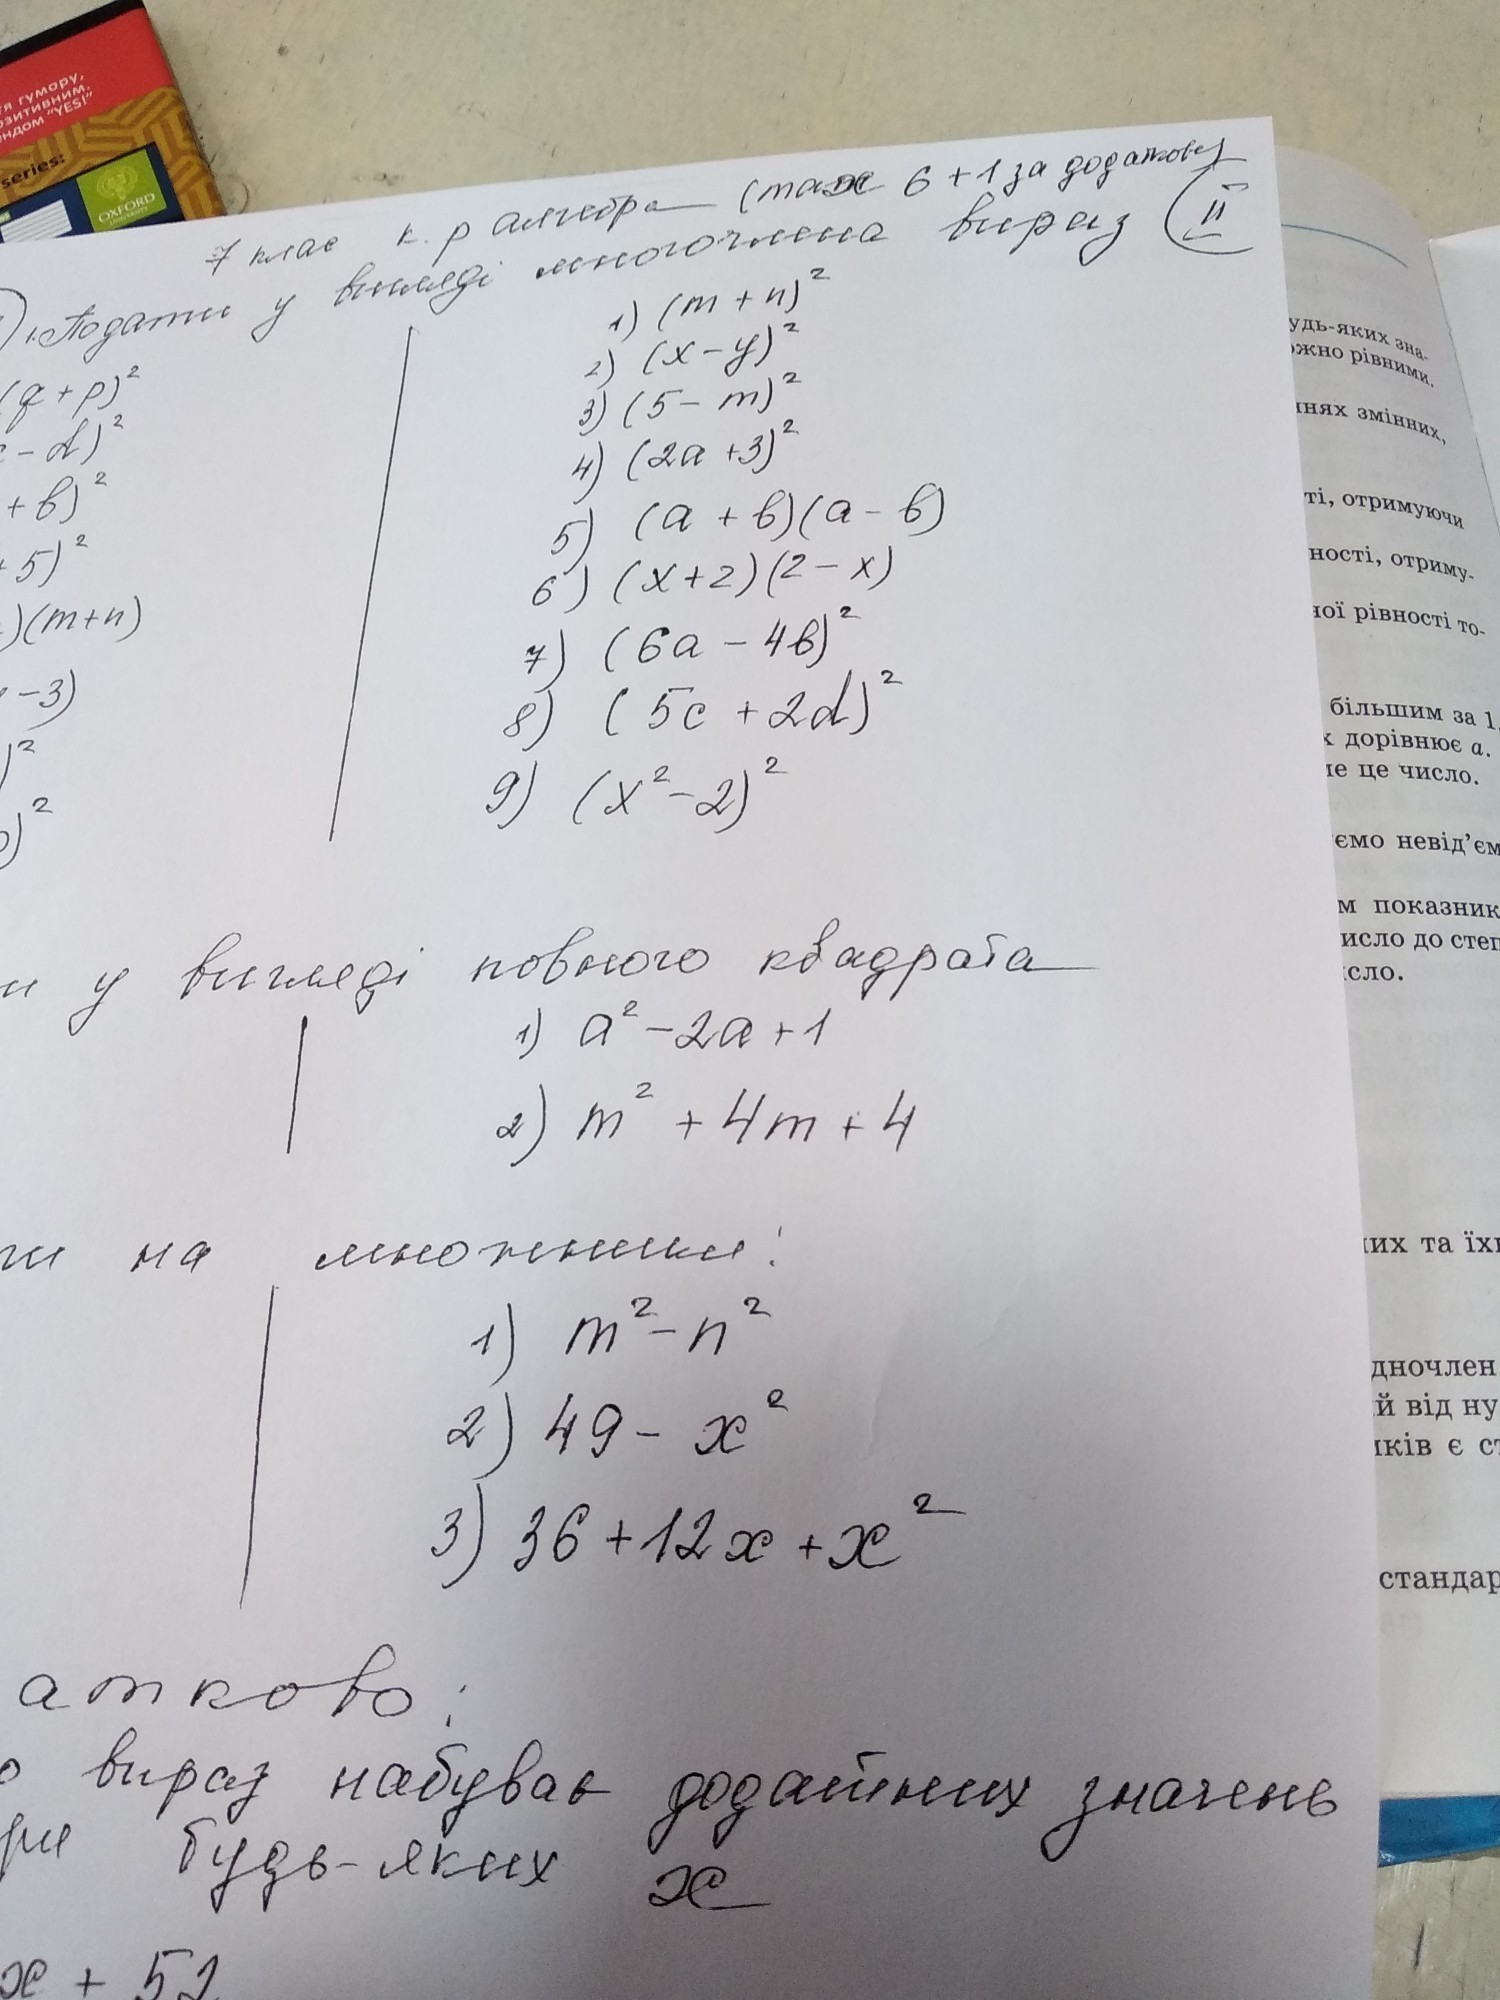 тя гумору,
позитивним.
ндом "YES!"
series:
OXFORD
UNIVERSITY
7 клас к.р алгебра (max 6 + 1 за додаткове)
1. Подати у вигляді многочлена вираз II
(q + p)²
c - d)²
+ b)²
+ 5)²
)(m+n)
- 3)
)²
)²
1) (m + n)²
2) (x - y)²
3) (5 - m)²
4) (2a + 3)²
5) (a + b)(a - b)
6) (x + 2)(2 - x)
7) (6a - 4b)²
8) (5c + 2d)²
9) (x² - 2)²
и у вигляді повного квадрата
1) a² - 2a + 1
2) m² + 4m + 4
ти на множники:
1) m² - n²
2) 49 - x²
3) 36 + 12x + x²
атково:
о вираз набуває додатних значень
ри будь-яких x
x + 52
удь-яких зна-
ожно рівними.
ннях змінних,
ті, отримуючи
ності, отриму-
ної рівності то-
більшим за 1,
х дорівнює a.
ме це число.
уємо невід'єм
м показник
исло до степ
сло.
них та їх
дночлен
й від ну
иків є ст
стандар